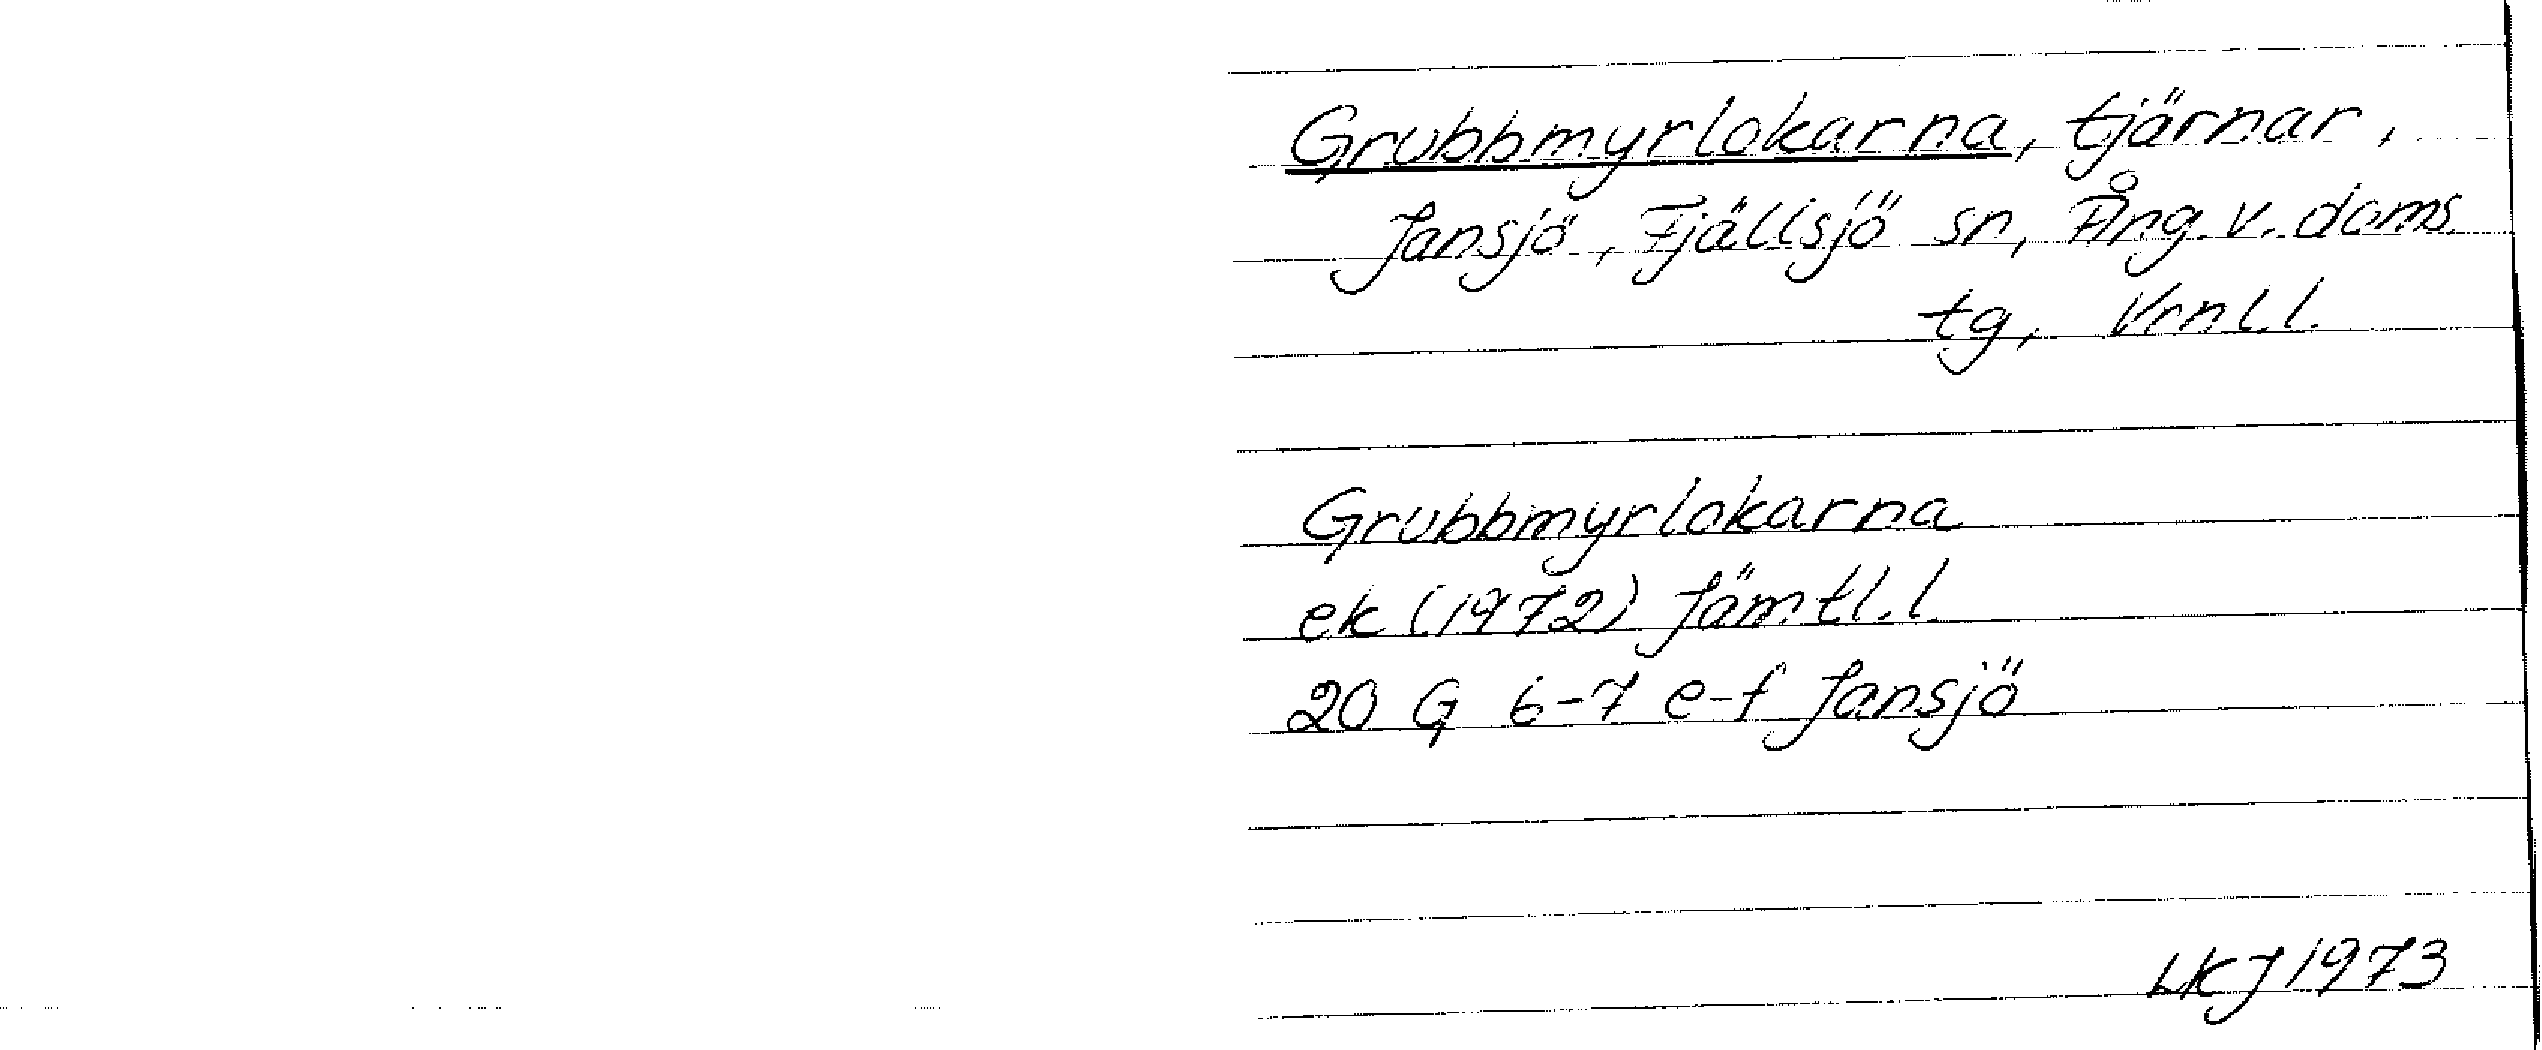 Grubbmyrlokarna, tjärnar,
Jansjö, Fjällsjö sn, Ång. v. doms.
tg, Vrnl.l.
Grubbmyrlokarna
ek (1972) Jämtl.l
20 G 6-7 e-f Jansjö
LKJ 1973